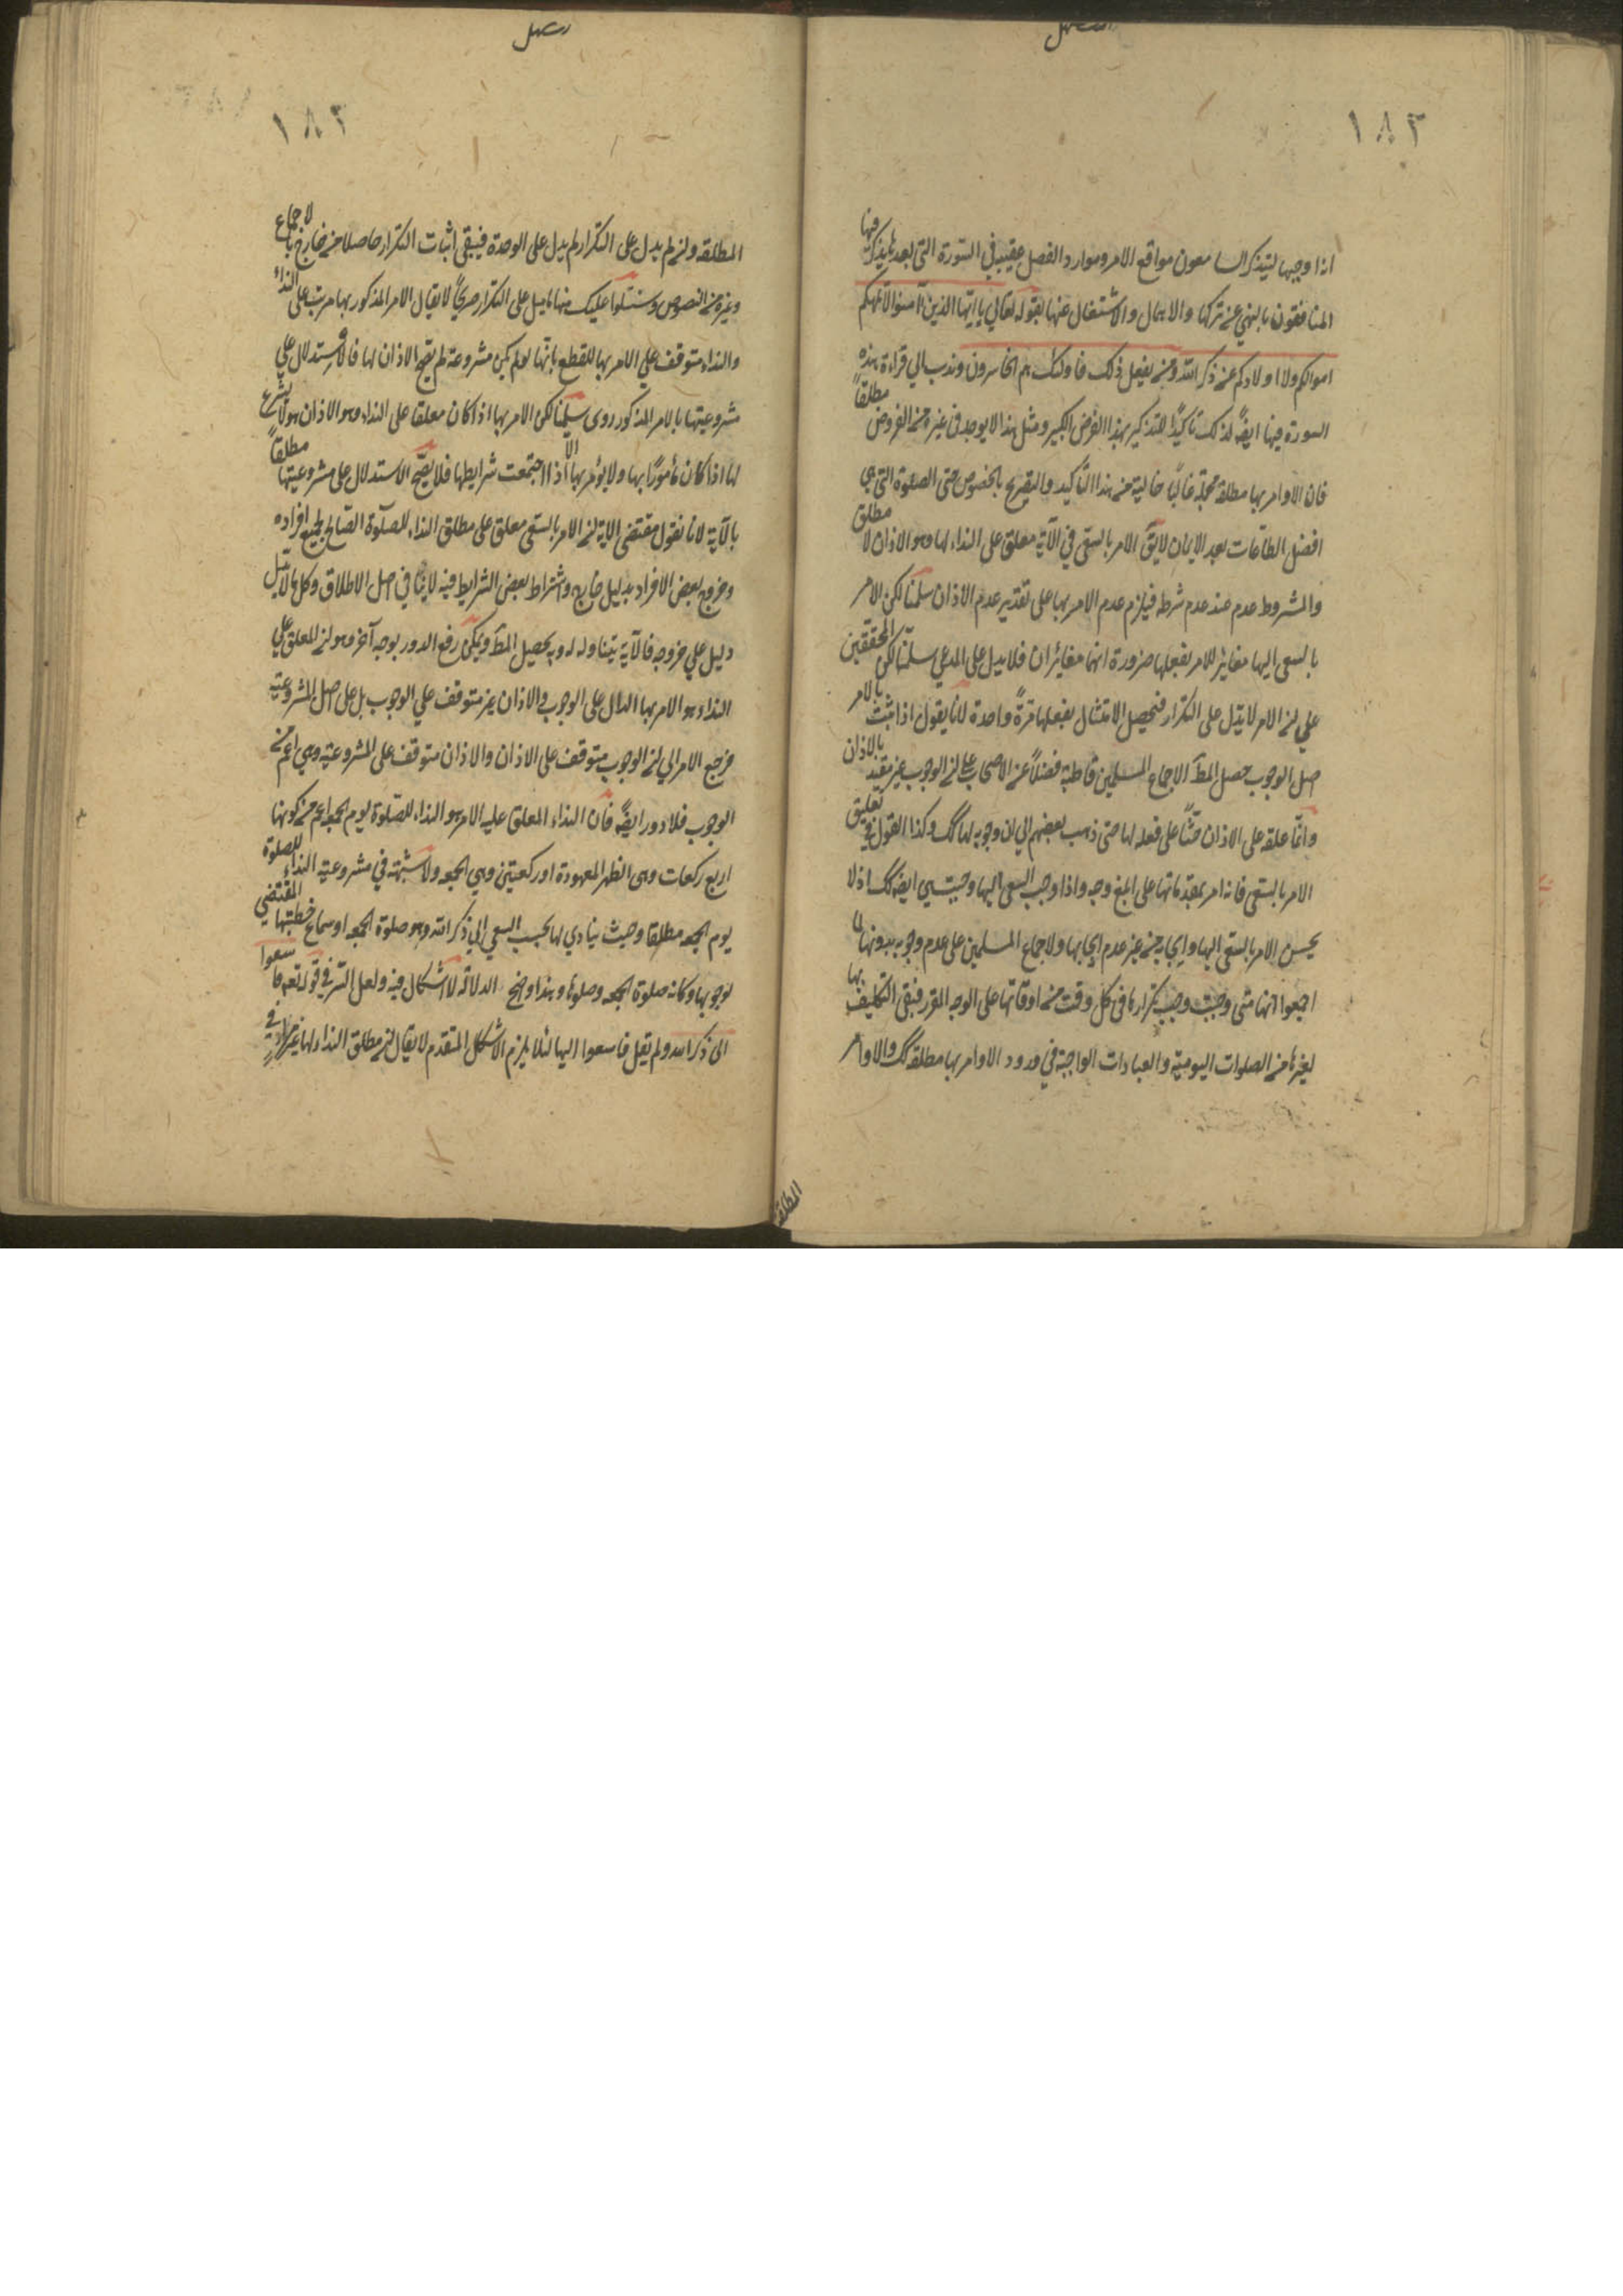 ١٨٢
اذا وجبها ليتذكر السامعون مواقع الامر وموارد الفصل عقيبه في السورة التي بعدها بذكر فيها
المنافقون بالنهي عن تركها والاهمال والاشتغال عنها بقوله تعالي يا ايها الذين آمنوا لا تلهكم
اموالكم ولا اولادكم عن ذكر الله ومن يفعل ذلك فاولئك هم الخاسرون وندب الي قراءة هذه
السورة فيها ايضً لذلك تاكيدًا للتذكير بهذا الفرض الكبير ومثل هذا لا يوجد في غيره من الفروض مطلقاً
فان الاوامر بها مطلقة مجملة غالبًا خالية من هذا التاكيد والتصريح بالخصوص حتى الصلوة التي هي
افضل الطاعات بعد الايمان لا يق الامر بالسعي في الآية معلق على النداء لها وهو الاذان لا مطلق
والمشروط عدم عند عدم شرطه فيلزم عدم الامر بها على تقدير عدم الاذان سلمنا لكن الامر
بالسعي اليها مغاير للامر بفعلها ضرورة انهما مغائران فلا يدل على المدعي سلمنا لكن المحققين
علي ان الامر لا يدل على التكرار فيحصل الامتثال بفعلها مرةً واحدة لانا يقول اذا ثبت بالامر
اصل الوجوب حصل المط لاجماع المسلمين قاطبة فضلاً عن الاصحاب على ان الوجوب غير مقيد بالاذان
وانما علقه على الاذان حثًا على فعله لها حتى ذهب بعضهم الي ان وجوبه لها لك وكذا القول في تعليق
الامر بالسعي فانه امر بمقدماتها على ابلغ وجه واذا وجب السعي اليها وجبت هي ايضً لك اذ لا
يحسن الامر بالسعي اليها وايجابه من غير عدم ايجابها ولاجماع المسلمين على عدم وجوبه بدونها كما
اجمعوا انها متى وجبت وجب تكرارها في كل وقت من اوقاتها على الوجه المقرر فبقي التكليف بها
لغيرها من الصلوات اليومية والعبادات الواجبة في ورود الاوامر بها مطلقة لك والاوامر
المطلقة
١٨٣
المطلقة وان لم يدل على التكرار لم يدل على الوحدة فيبقى اثبات التكرار حاصلا من خارج بالاجماع
وغيره من النصوص وسنتلوا عليك منها ما يدل على التكرار صريحًا لا يقال الامر المذكور بها مرتب على النداء
والنداء متوقف علي الامر بها للقطع بانها لو لم يكن مشروعة لم يقع الاذان لها فالاستدلال علي
مشروعيتها بالامر المذكور دوري سلمنا لكن الامر بها اذا كان معلقا على النداء وهو الاذان هو لا يشرع
لها اذا كان مأمورًا بها ولا يؤمر بها الا اذا اجتمعت شرايطها فلا يصح الاستدلال على مشروعيتها مطلقاً
بالآية لانا نقول مقتضى الاية ان الامر بالسعي معلق على مطلق النداء للصلوة الصالح لجميع افراده
وخروج بعض الافراد بدليل خارج واشتراط بعض الشرايط فيه لا ينافي اصل الاطلاق وكل ما لا يدل
دليل علي خروجه فالآية يتناوله له وبه يحصل المط ويمكن رفع الدور بوجه آخر وهو ان المعلق علي
النداء هو الامر بها الدال على الوجوب والاذان غير متوقف علي الوجوب بل على اصل المشروعية
فرجع الامر الي ان الوجوب متوقف على الاذان والاذان متوقف على المشروعية وهي اعم من
الوجوب فلا دور ايضً فان النداء المعلق عليه الامر هو النداء للصلوة يوم الجمعه اعم من كونها
اربع ركعات وهي الظهر المعهودة او ركعتين وهي الجمعه ولا شبهة في مشروعية النداء للصلوة
يوم الجمعه مطلقا وحيث ينادي لها يجب السعي الي ذكر الله وهو صلوة الجمعه او سماع خطبتها المقتضي
لوجوبها وكانه صلوة الجمعه وصلوها وهذا واضح الدلالة لا اشكال فيه ولعل السر في قوله تعم فاسعوا
الى ذكر الله ولم يقل فاسعوا اليها لئلا يلزم الاشكال المتقدم لا يقال ان مطلق النداء لها غير مراد في